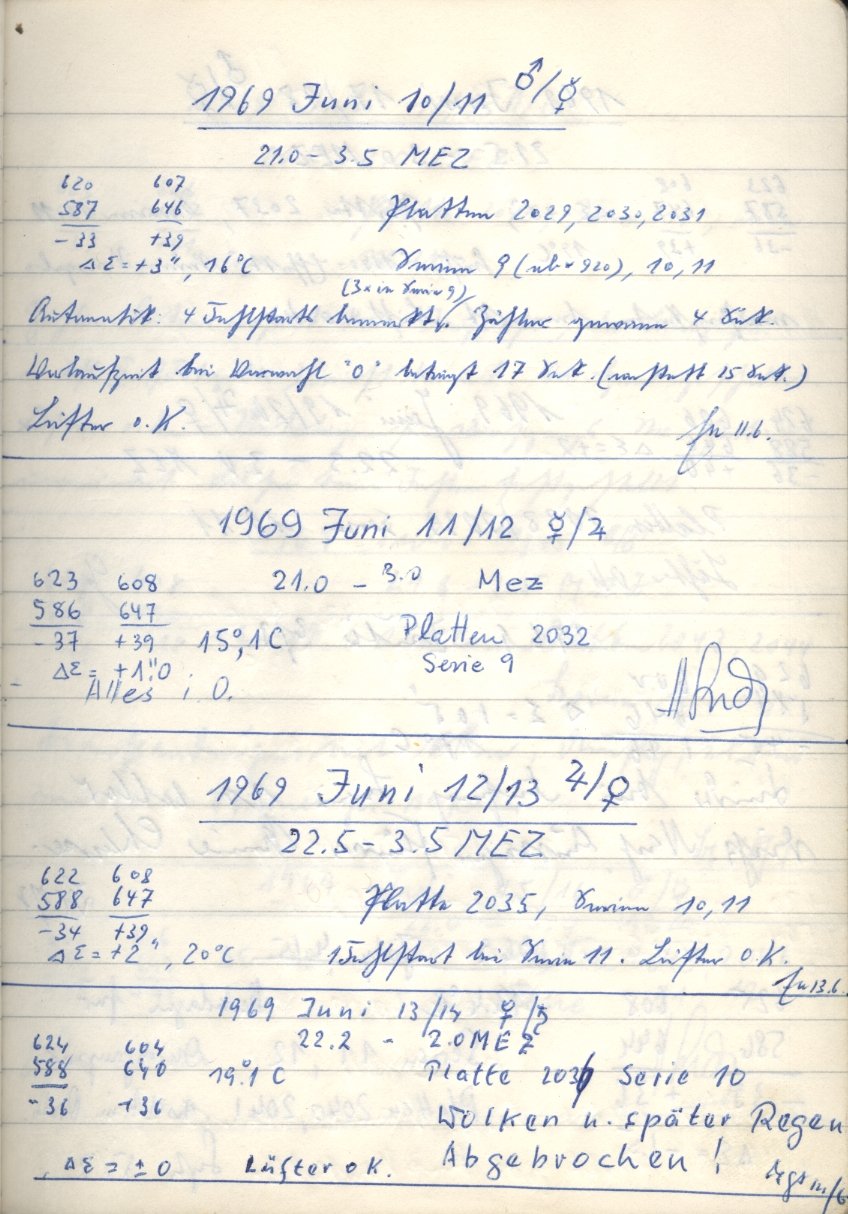 1969 Juni 10/11 ♂/☿
21.0 - 3.5 MEZ
620 607
587 646 Platten 2029, 2030, 2031
-33 +39
ΔΣ = +3", 16°C Serien 9 (ab * 920), 10, 11
(3x in Serie 9)
Automatik: 4 Fehlstarts bemerkt. Zähler gewann 4 Sek.
Vorlaufzeit bei Vorwahl "0" beträgt 17 Sek. (anstatt 15 Sek.)
Lüfter o.K. 11.6.
1969 Juni 11/12 ☿/♃
623 608 21.0 - 3.0 Mez
586 647 Platten 2032
-37 +39 15°,1C Serie 9
ΔΣ = +1"0
Alles i O.
1969 Juni 12/13 ♃/♀
22.5 - 3.5 MEZ
622 608
588 647 Platte 2035, Serien 10, 11
-34 +39
ΔΣ = +2", 20°C 1 Fehlstart bei Serie 11. Lüfter o.K.
13.6.
1969 Juni 13/14 ♀/♄
624 604 22.2 - 2.0 MEZ
588 640 19°.1 C Platte Serie 10
-36 +36
Wolken u. später Regen
ΔΣ = ± 0 Lüfter o K. Abgebrochen!